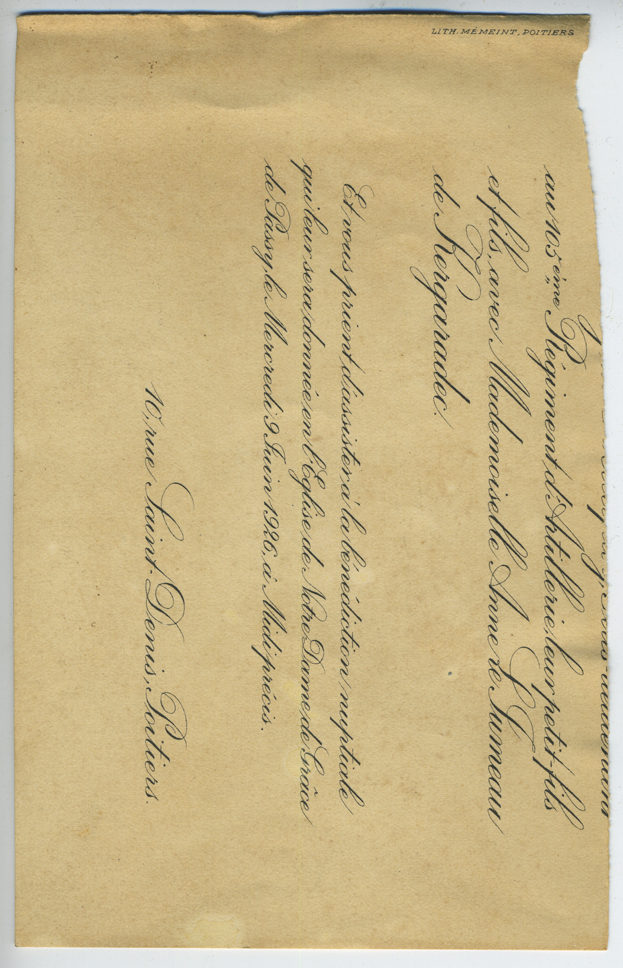 au 105ème Régiment d'Artillerie, leur petit-fils
et fils, avec Mademoiselle Anne Le Jumeau
de Kergaradec.
Et vous prient d'assister à la bénédiction nuptiale
qui leur sera donnée en l'Eglise de Notre Dame de Grâce
de Passy, le Mercredi 9 Juin 1926, à Midi précis.
10, rue Saint-Denis, Poitiers.
LITH. MÉMEINT, POITIERS